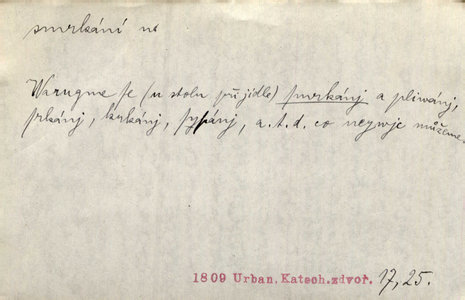 smrkání n
Warugme se (u stolu při jidle) smrkánj a pliwánj,
prkánj, krkánj, sypánj, a.t.d. co neywjc můžeme.
1809 Urban. Katech. zdvoř. 17, 25.